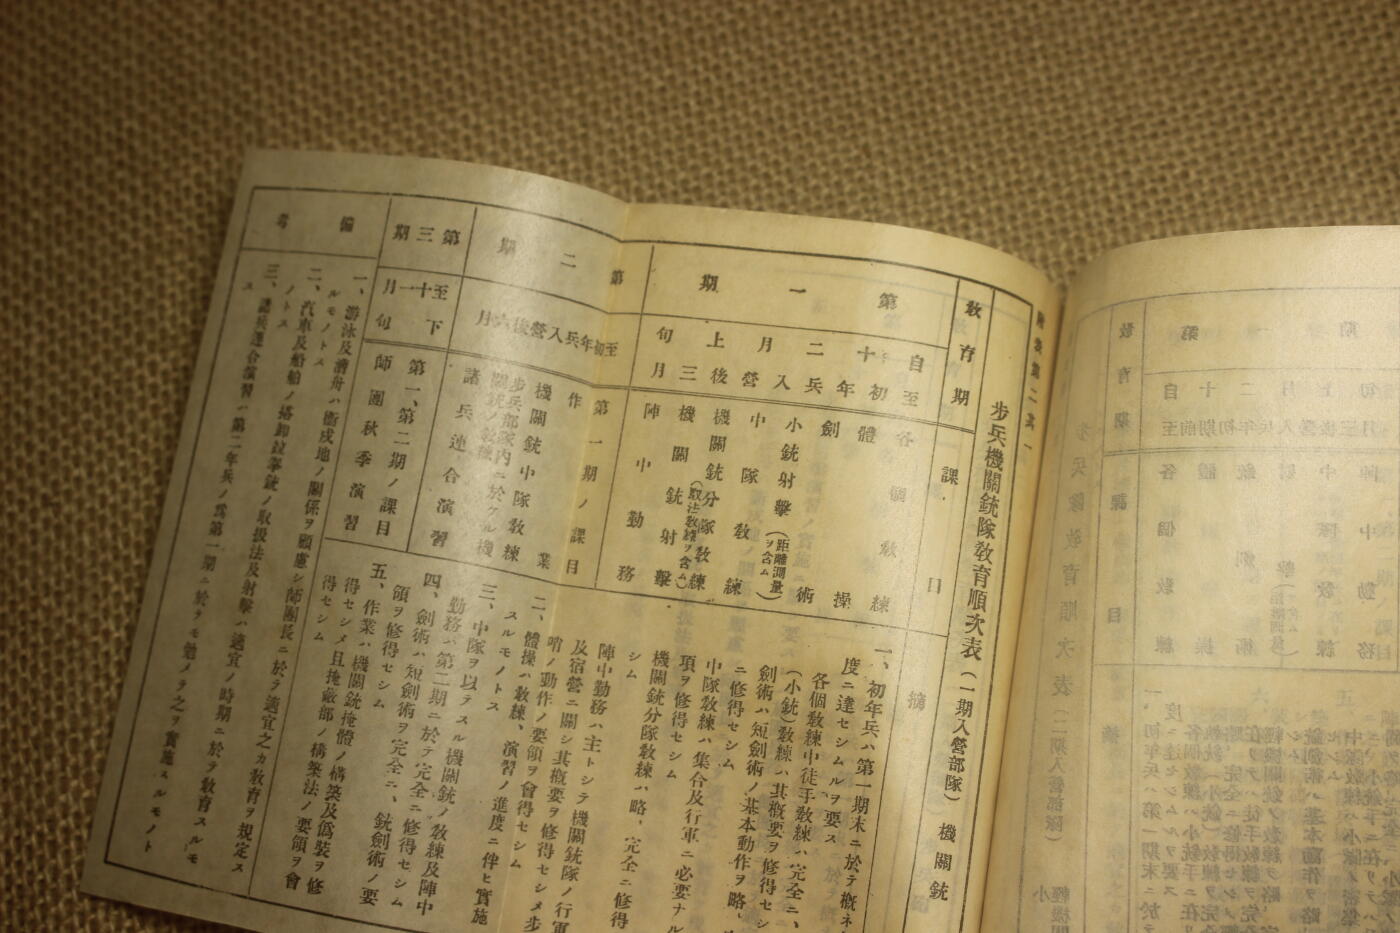 附表第二其一
步兵機關銃隊敎育順次表（一期入營部隊）機關銃
敎育期
課目
摘
第一期
自十二月上旬
至初年兵入營後三月
各個敎練
體操
劍術
小銃射擊（距離測量ヲ含ム）
中隊敎練
機關銃分隊敎練（取法敎練ヲ含ム）
機關銃射擊
陣中勤務
一、初年兵ハ第一期末ニ於テ槪ネ
度ニ達セシムルヲ要ス
各個敎練中徒手敎練ハ完全ニ、
（小銃）敎練ハ其槪要ヲ修得セシ
劍術ハ短劍術ノ基本動作ヲ略、
ニ修得セシム
中隊敎練ハ集合及行軍ニ必要ナル
項ヲ修得セシム
機關銃分隊敎練ハ略、完全ニ修得
シム
陣中勤務ハ主トシテ機關銃隊ノ行軍
及宿營ニ關シ其槪要ヲ修得セシメ步
哨ノ動作ノ要領ヲ會得セシム
二、體操ハ敎練、演習ノ進度ニ伴ヒ實施
スルモノトス
三、中隊ヲ以テスル機關銃ノ敎練及陣中
勤務ハ第二期ニ於テ完全ニ修得セシム
四、劍術ハ短劍術ヲ完全ニ、銃劍術ノ要
領ヲ修得セシム
五、作業ハ機關銃掩體ノ構築及僞裝ヲ修
得セシメ且掩蔽部ノ構築法ノ要領ヲ會
得セシム
第二期
至初年兵入營後六月
第一期ノ課目
作業
機關銃中隊敎練
步兵部隊內ニ於ケル機
關銃ノ敎練
諸兵連合演習
第三期
至十一月下旬
第一、第二期ノ課目
師團秋季演習
備考
一、游泳及漕舟ハ衞戍地ノ關係ヲ顧慮シ師團長ニ於テ適宜之カ敎育ヲ規定ス
ルモノトス
二、汽車及船舶ノ搭卸竝拳銃ノ取扱法及射擊ハ適宜ノ時期ニ於テ敎育スルモ
ノトス
三、諸兵連合演習ハ第二年兵ノ爲第一期ニ於テモ勉メテ之ヲ實施スルモノト
ス